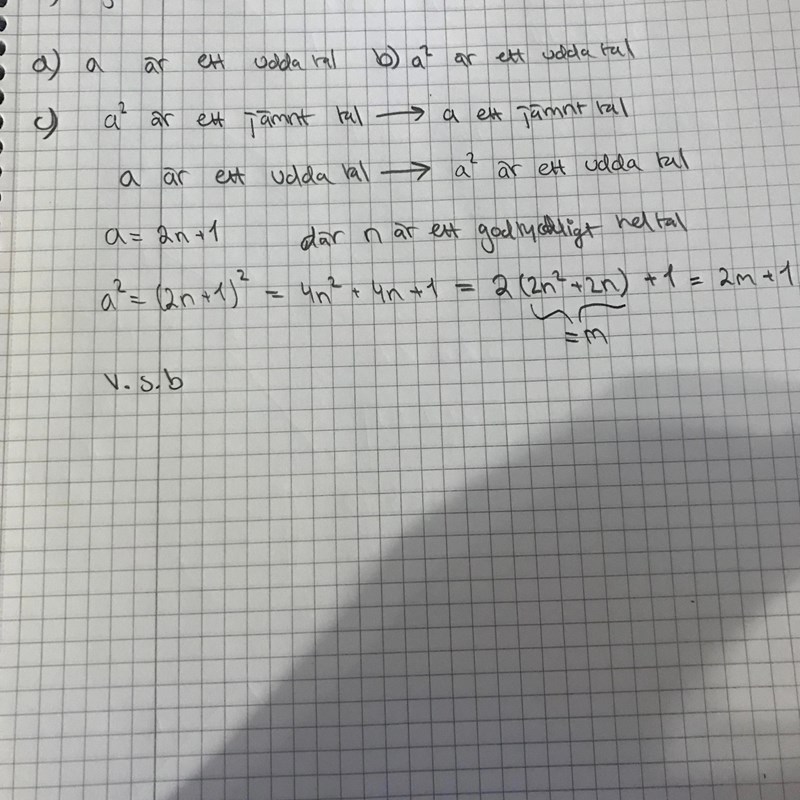 a) a är ett udda tal b) a² är ett udda tal
c) a² är ett jämnt tal → a ett jämnt tal
a är ett udda tal → a² är ett udda tal
a = 2n+1 där n är ett godtyckligt heltal
a² = (2n+1)² = 4n² + 4n + 1 = 2(2n² + 2n) + 1 = 2m + 1
= m
v.s.b